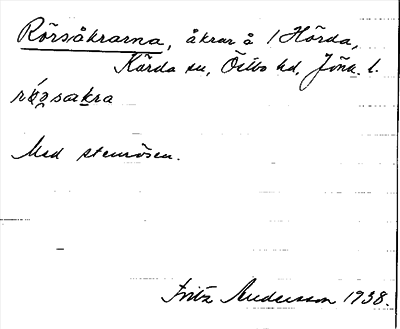 Rörsåkrarna, åkrar å 1 Hörda,
Kärda sn, Östbo hd, Jönk. l.
Med stenrösen.
Fritz Andersson 1938.